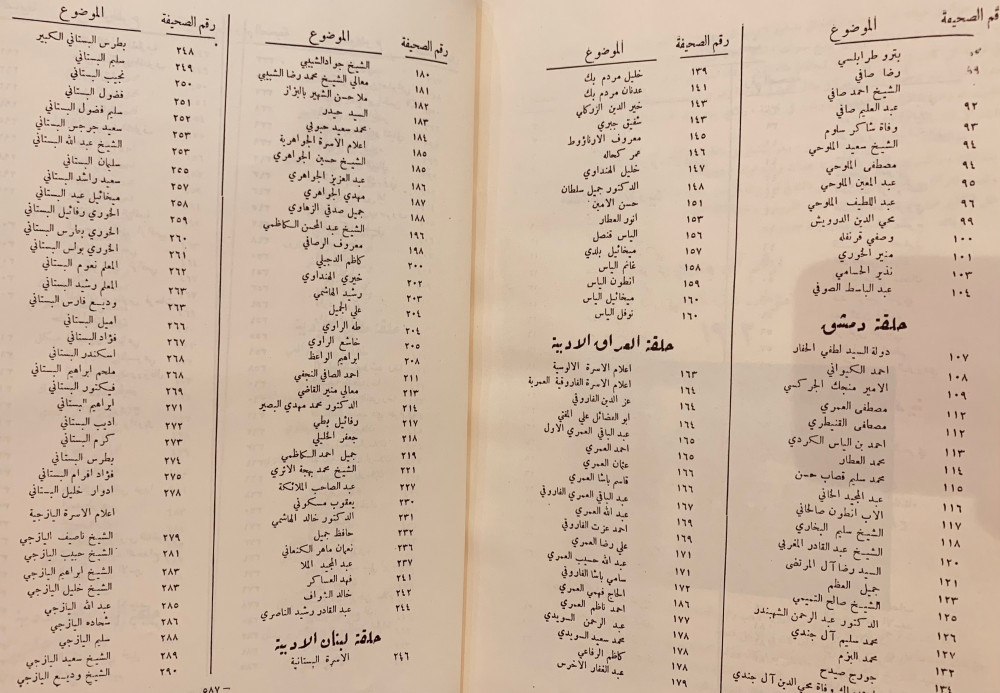 رقم الصحيفة الموضوع
بترو طرابلسي
رضا صافي
الشيخ احمد صافي
٩٢ عبد العليم صافي
٩٣ وفاة شاكر سلوم
٩٤ الشيخ سعيد الملوحي
٩٤ مصطفى الملوحي
٩٥ عبد المعين الملوحي
٩٦ عبد اللطيف الملوحي
٩٩ يحي الدين الدرويش
١٠٠ وصفي قرنفله
١٠١ منير الخوري
١٠٣ نذير الحسامي
١٠٤ عبد الباسط الصوفي
حلقة دمشق
١٠٧ دولة السيد لطفي الحفار
١٠٨ احمد الكيواني
١٠٩ الامير منجك الجركسي
١١٢ مصطفى العمري
١١٢ مصطفى القنيطري
١١٣ احمد بن الياس الكردي
١١٤ محمد العطار
١١٥ محمد سليم قصاب حسن
١١٦ عبد المجيد الخاني
١١٧ الاب انطون صالحاني
١١٨ الشيخ سليم البخاري
١٢٠ الشيخ عبد القادر المغربي
١٢١ السيد رضا آل المرتضى
١٢٣ جميل العظم
١٢٥ الشيخ صالح التميمي
١٢٦ الدكتور عبد الرحمن الشهبندر
١٢٧ محمد سليم آل جندي
١٣٢ محمد البزم
١٣٤ جورج صيدح
وفاة محي الدين آل جندي
رقم الصحيفة الموضوع
١٣٩ خليل مردم بك
١٤١ عدنان مردم بك
١٤٣ خير الدين الزركلي
١٤٣ شفيق جبري
١٤٥ معروف الارناؤوط
١٤٦ عمر كحاله
١٤٧ خليل الهنداوي
١٤٨ الدكتور جميل سلطان
١٥١ حسن الامين
١٥٣ انور العطار
١٥٦ الياس قنصل
١٥٧ ميخائيل بلدي
١٥٨ غانم الياس
١٥٩ انطون الياس
١٦٠ ميخائيل الياس
١٦٠ نوفل الياس
حلقة العراق الادبية
١٦٣ اعلام الاسرة الالوسية
١٦٤ اعلام الاسرة الفاروقية العمرية
١٦٤ عز الدين الفاروقي
١٦٤ ابو الفضائل علي المفتي
١٦٥ عبد الباقي العمري الاول
١٦٥ احمد العمري
١٦٦ عثمان العمري
١٦٦ قاسم باشا العمري
١٦٧ عبد الباقي العمري الفاروقي
١٦٩ عبد الله العمري
١٦٩ احمد عزت الفاروقي
١٧١ علي رضا العمري
١٧١ عبد الله حسيب العمري
١٧٢ سامي باشا الفاروقي
١٨٦ الحاج فهمي العمري
١٧٧ احمد ناظم العمري
١٧٨ عبد الرحمن السويدي
١٧٨ محمد سعيد السويدي
١٧٨ كاظم الرفاعي
١٧٩ عبد الغفار الاخرس
رقم الصحيفة الموضوع
١٨٠ الشيخ جواد الشبيبي
١٨١ معالي الشيخ محمد رضا الشبيبي
١٨٢ ملا حسن الشهير بالبزاز
١٨٣ السيد حيدر
١٨٤ محمد سعيد حبوبي
١٨٥ اعلام الاسرة الجواهرية
١٨٥ الشيخ حسين الجواهري
١٨٦ عبد العزيز الجواهري
١٨٧ مهدي الجواهري
١٨٨ جميل صدقي الزهاوي
١٩٦ الشيخ عبد المحسن الكاظمي
١٩٨ معروف الرصافي
٢٠٠ كاظم الدجيلي
٢٠٢ خيري الهنداوي
٢٠٣ رشيد الهاشمي
٢٠٤ علي الجميل
٢٠٤ طه الراوي
٢٠٥ خاشع الراوي
٢٠٨ ابراهيم الواعظ
٢١١ احمد الصافي النجفي
٢١٣ معالي منير القاضي
٢١٤ الدكتور محمد مهدي البصير
٢١٧ رفائيل بطي
٢١٨ جعفر الخليلي
٢١٩ جميل احمد الكاظمي
٢٢١ الشيخ محمد بهجة الاثري
٢٢٧ عبد الصاحب الملائكة
٢٣٠ يعقوب مسكوني
٢٣١ الدكتور خالد الهاشمي
٢٣٢ حافظ جميل
٢٣٦ نعمان ماهر الكنعاني
٢٣٧ عبد المجيد الملا
٢٤١ فهد العساكر
٢٤٢ خالد الشواف
٢٤٤ عبد القادر رشيد الناصري
حلقة لبنان الادبية
٢٤٦ الاسرة البستانية
رقم الصحيفة الموضوع
٢٤٨ بطرس البستاني الكبير
٢٤٩ سليم البستاني
٢٥٠ نجيب البستاني
٢٥١ فضول البستاني
٢٥٢ سليم فضول البستاني
٢٥٣ سعيد جرجس البستاني
٢٥٣ الشيخ عبد الله البستاني
٢٥٥ سليمان البستاني
٢٥٧ سعيد راشد البستاني
٢٥٨ ميخائيل عيد البستاني
٢٥٩ الخوري رفائيل البستاني
٢٦٠ الخوري بطرس البستاني
٢٦١ الخوري بولس البستاني
٢٦٢ المعلم نعوم البستاني
٢٦٣ المعلم رشيد البستاني
٢٦٣ وديع فارس البستاني
٢٦٦ اميل البستاني
٢٦٧ فؤاد البستاني
٢٦٨ اسكندر البستاني
٢٦٨ ملحم ابراهيم البستاني
٢٦٩ فيكتور البستاني
٢٧١ ابراهيم البستاني
٢٧٢ اديب البستاني
٢٧٣ كرم البستاني
٢٧٤ بطرس البستاني
٢٧٥ فؤاد افرام البستاني
٢٧٨ ادوار خليل البستاني
اعلام الاسرة اليازجية
٢٧٩ الشيخ ناصيف اليازجي
٢٨١ الشيخ حبيب اليازجي
٢٨٣ الشيخ ابراهيم اليازجي
٢٨٣ الشيخ خليل اليازجي
٢٨٥ عبد الله اليازجي
٢٨٦ شحاده اليازجي
٢٨٨ سليم اليازجي
٢٨٩ الشيخ سعيد اليازجي
٢٩٠ الشيخ وديع اليازجي
٥٨٧ –